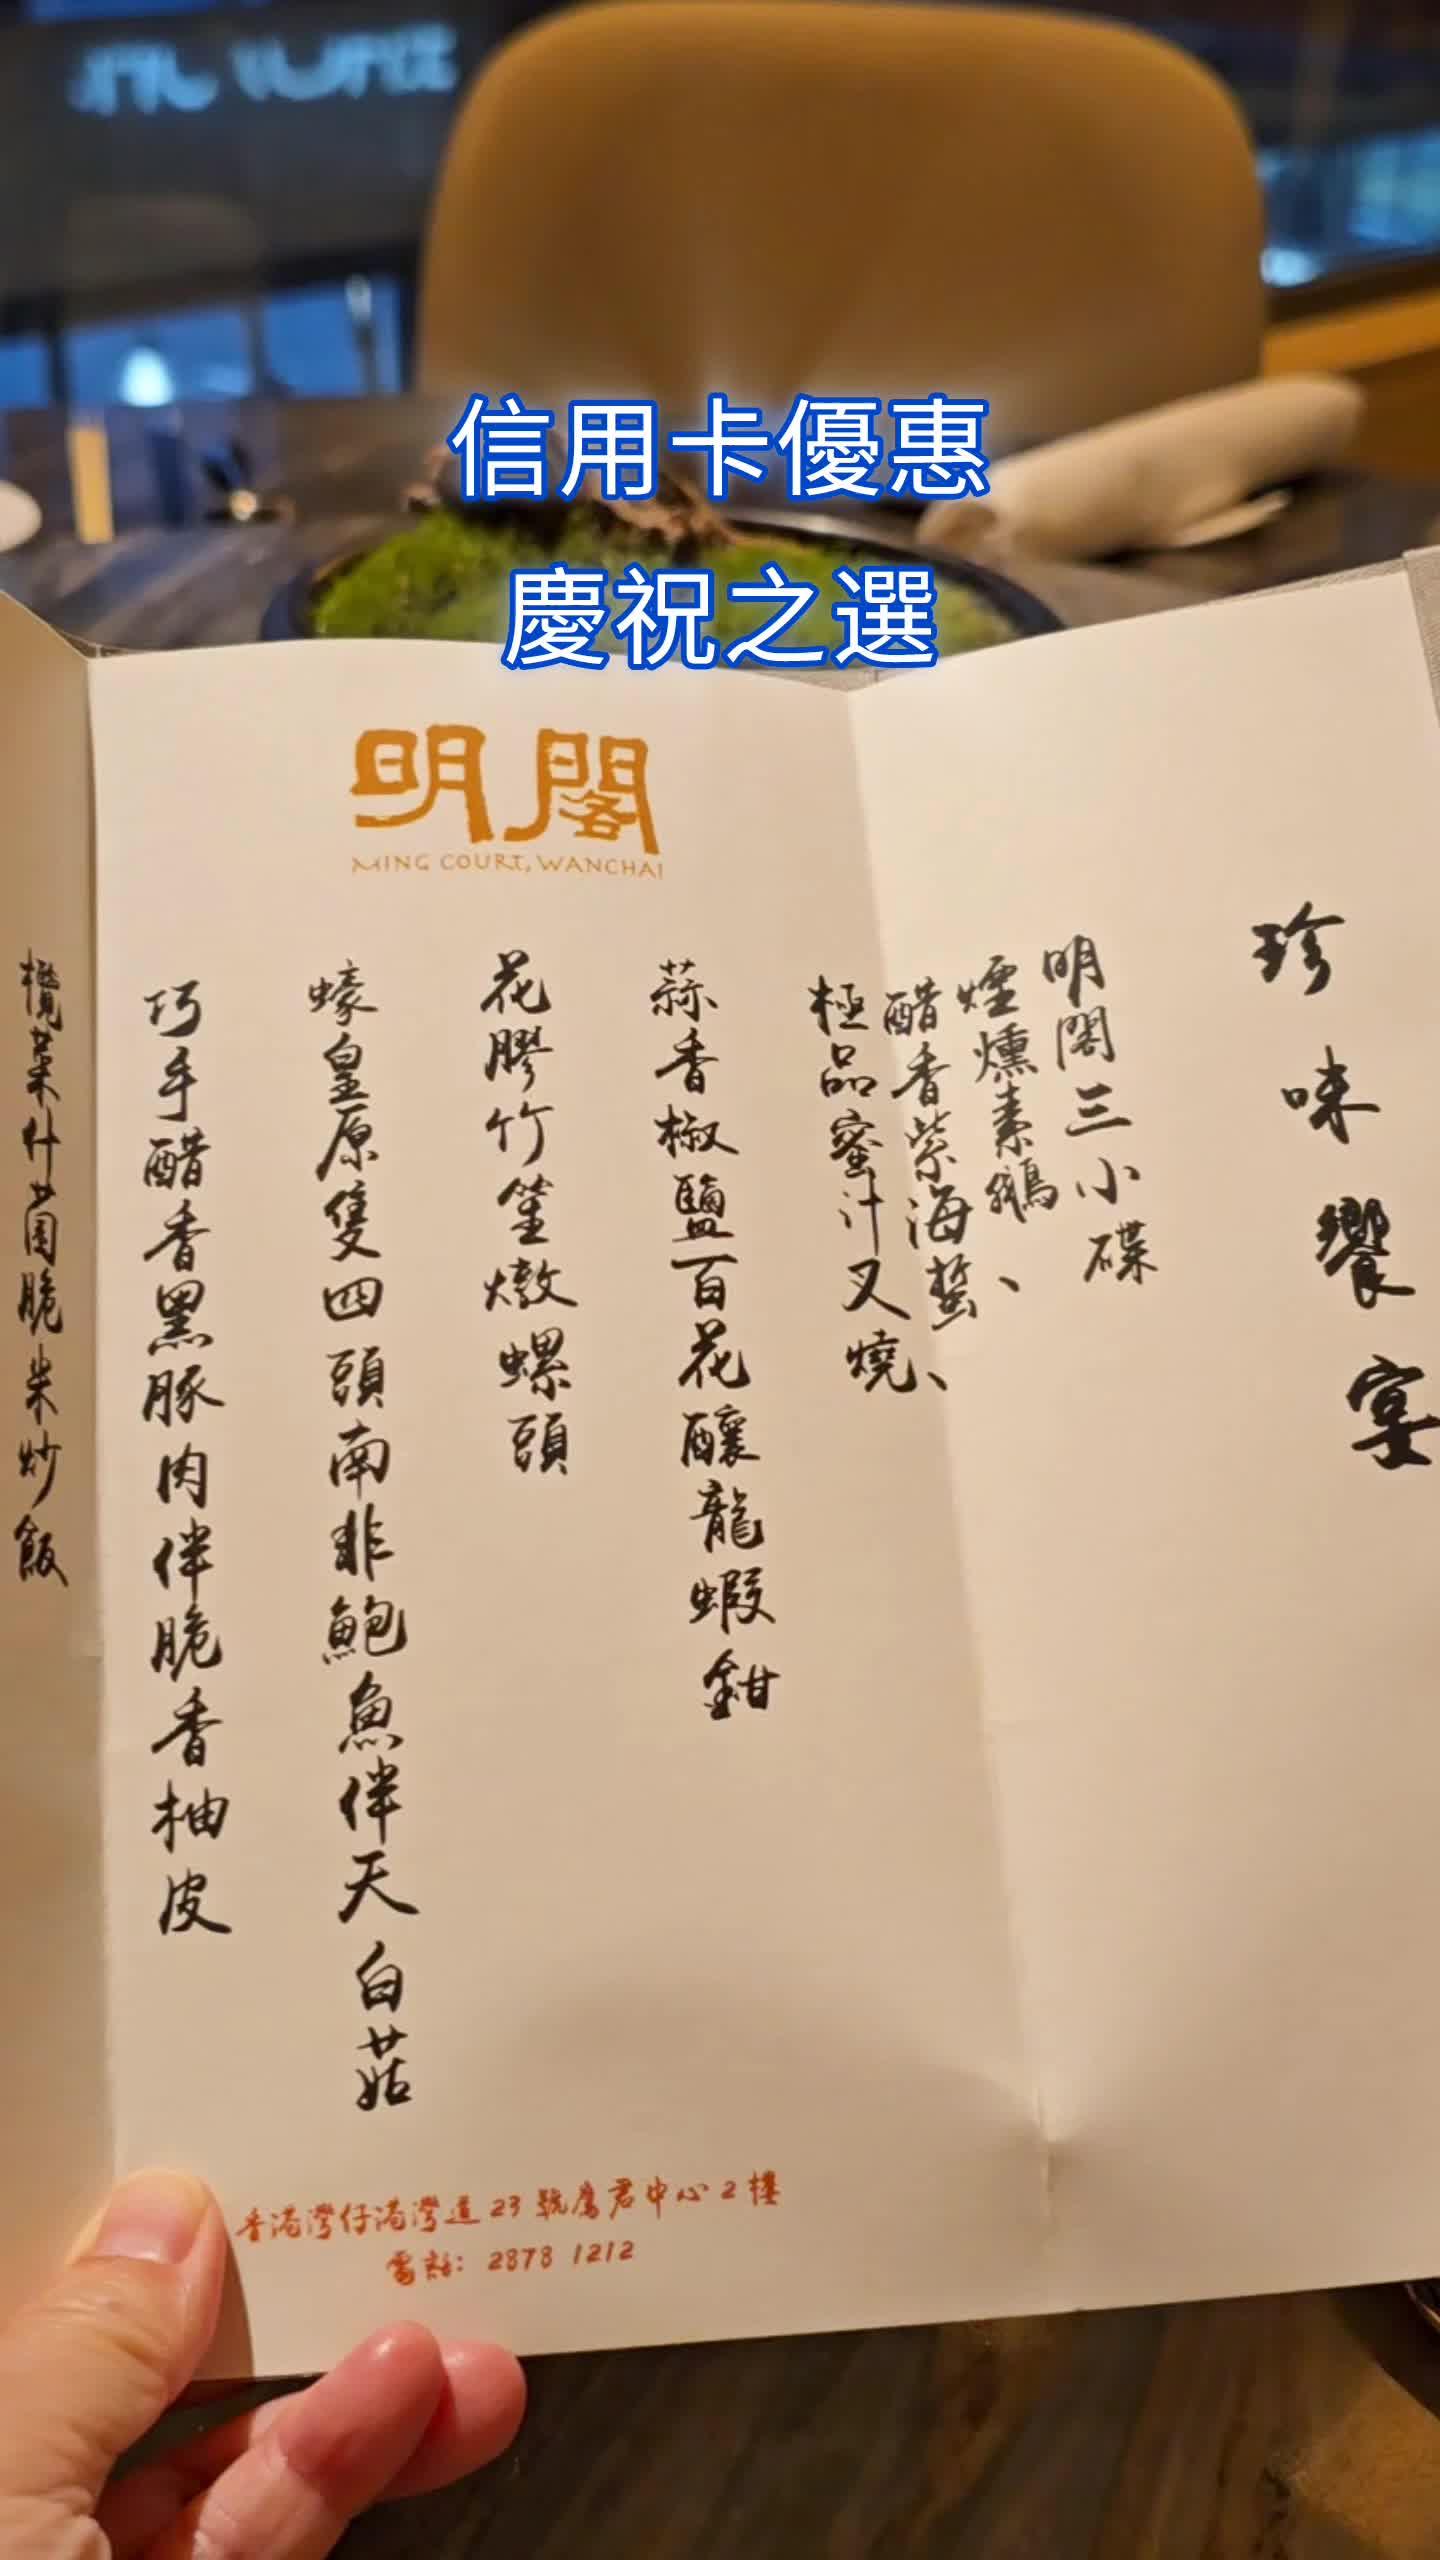 信用卡優惠
慶祝之選
明閣
MING COURT, WANCHAI
珍味饗宴
明閣三小碟
煙燻素鵝、
醋香紫海蜇、
極品蜜汁叉燒、
蒜香椒鹽百花釀龍蝦鉗
花膠竹笙燉螺頭
蠔皇原隻四頭南非鮑魚伴天白菇
巧手醋香黑豚肉伴脆香柚皮
欖菜什菌脆米炒飯
香港灣仔港灣道23號鷹君中心2樓
電話: 2878 1212